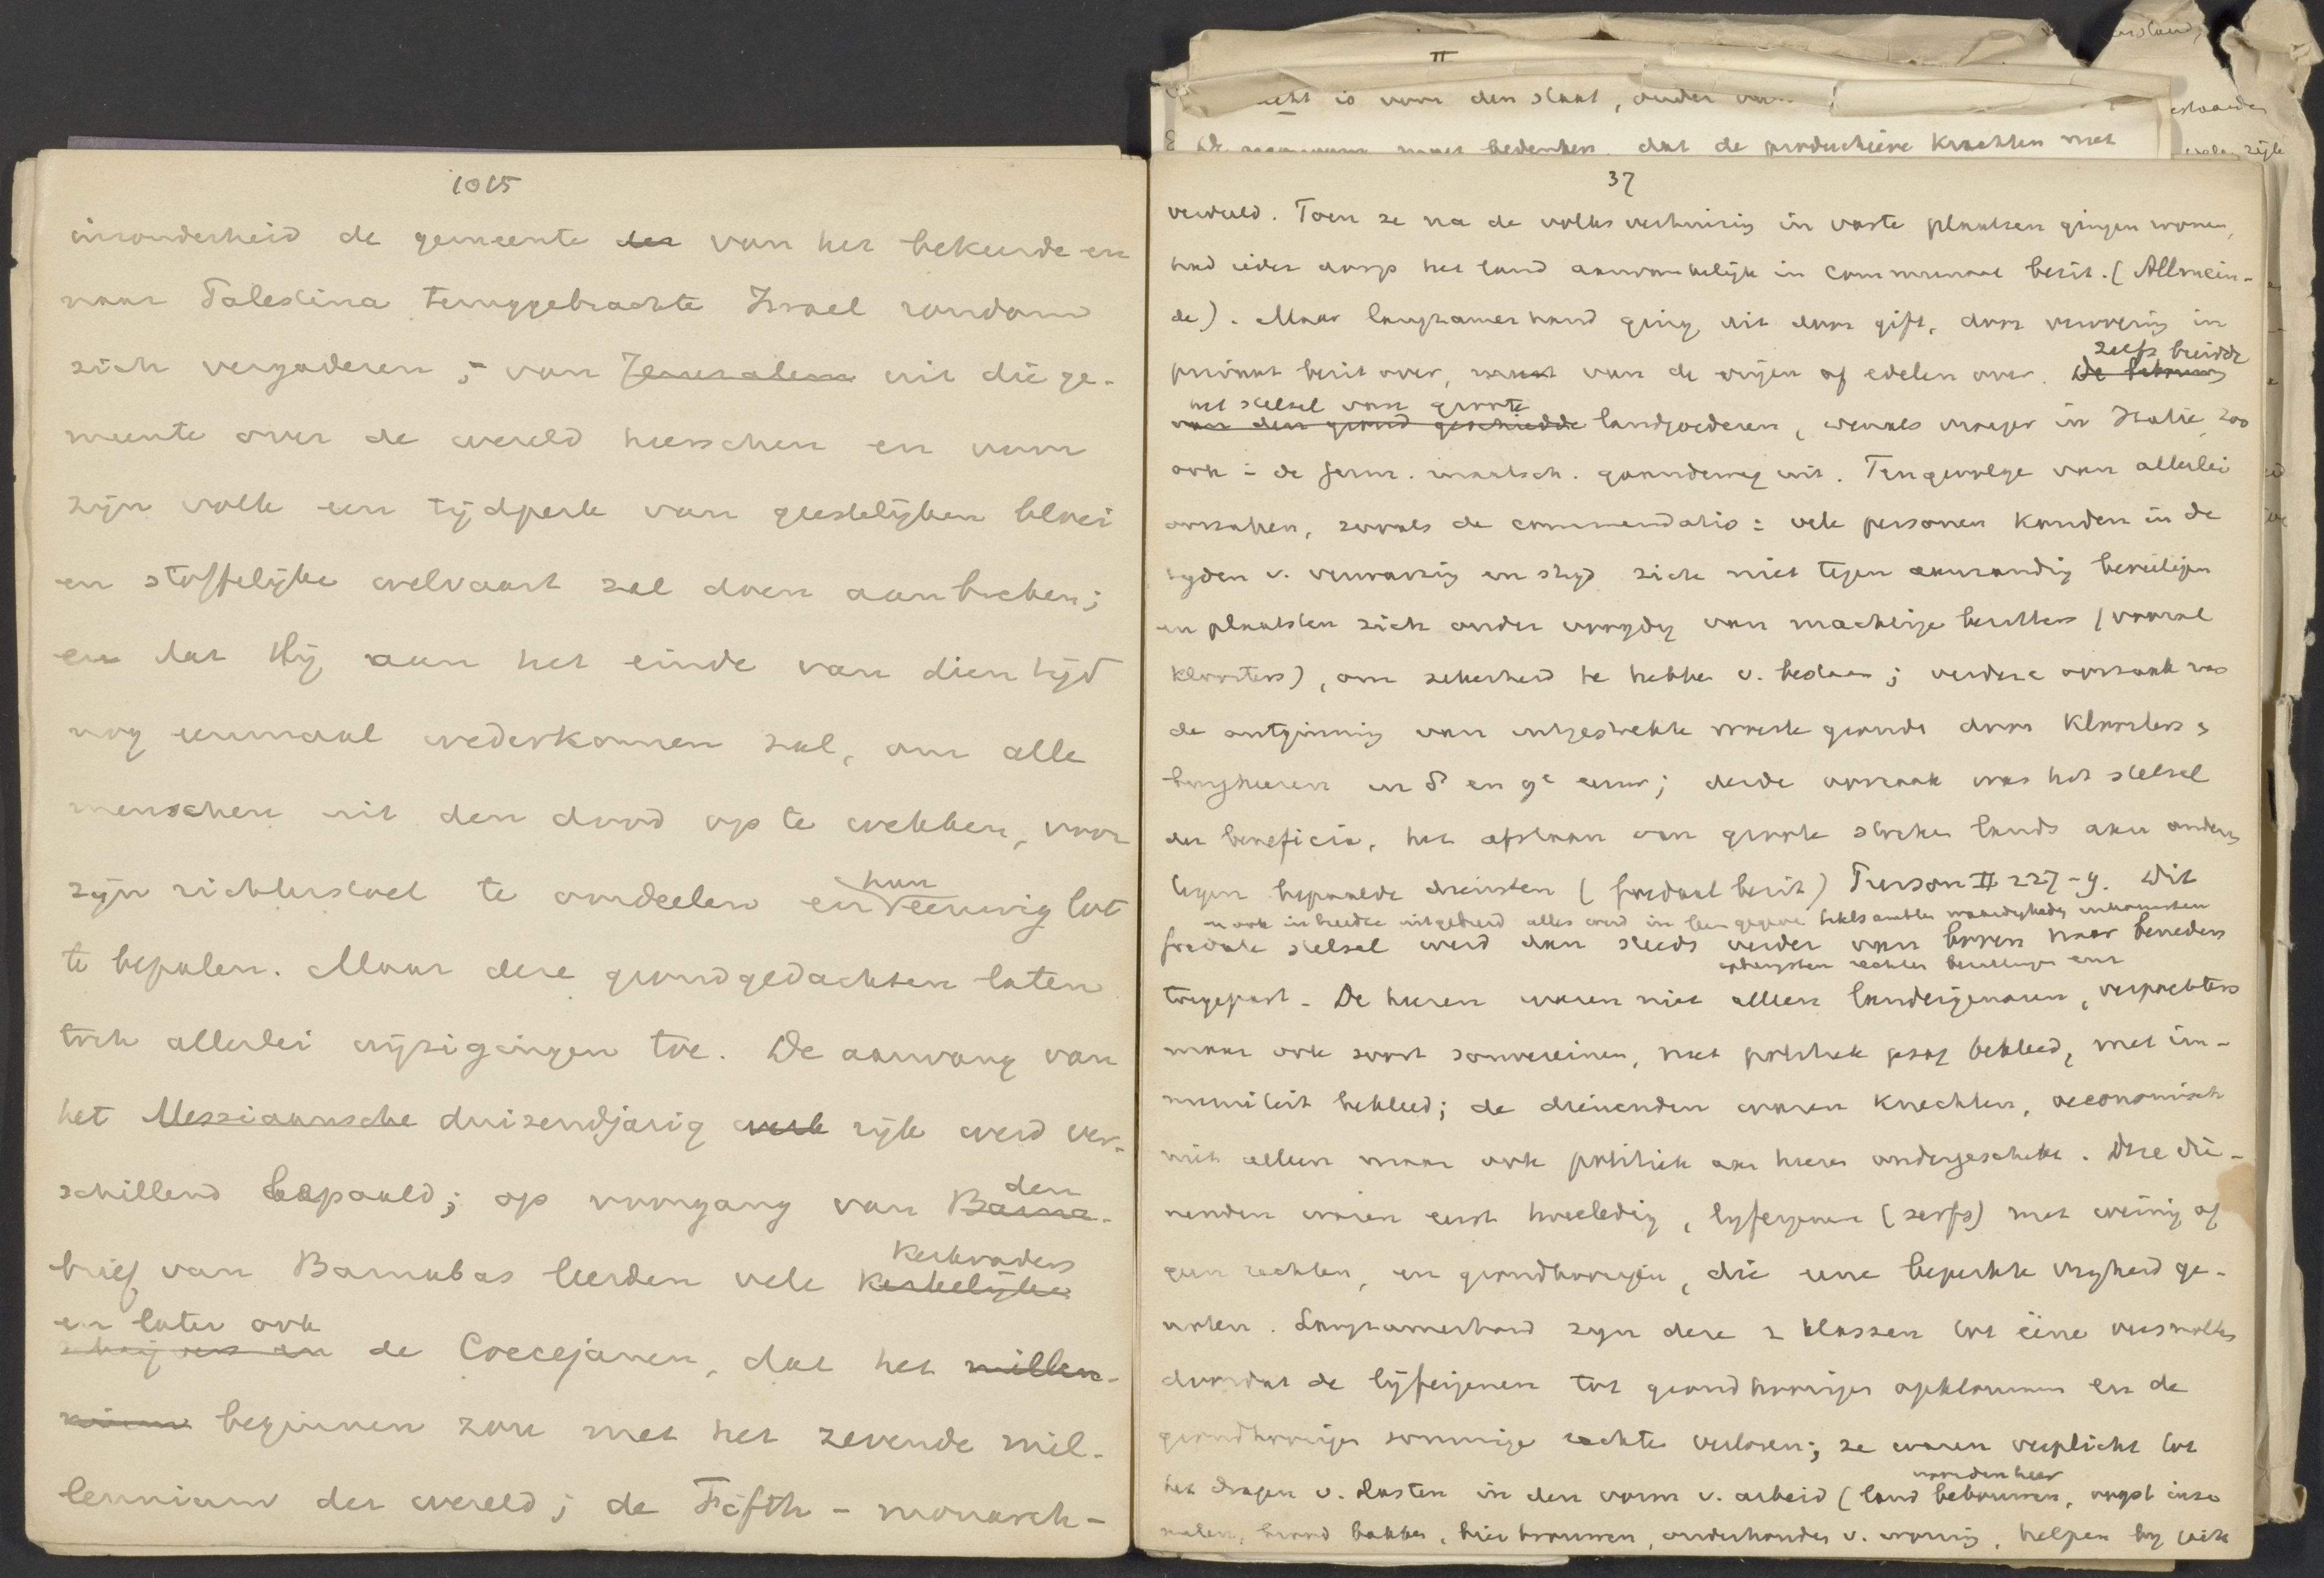 1015
inzonderheid de gemeente des van het bekeerde en
naar Palestina teruggebrachte Israel rondom
zich vergaderen, van Jeruzalem uit die ge-
meente over de wereld heerschen en voor
zijn volk een tijdperk van geestelijken bloei
en stoffelijke welvaart zal doen aanbreken;
en dat Hij aan het einde van dien tijd
nog eenmaal wederkomen zal, om alle
menschen uit den dood op te wekken, voor
zijn richterstoel te oordeelen en hun eeuwig lot
te bepalen. Maar deze grondgedachten laten
toch allerlei wijzigingen toe. De aanvang van
het Messiaansche duizendjarig werk rijk werd ver-
schillend bepaald; op voorgang van den Barna-
brief van Barnabas leerden vele kerkelijke kerkvaders
en later ook schrijvers en de Coccejanen, dat het millen-
nium beginnen zou met het zevende mil-
lennium der wereld; de Fifth-monarch-
II
is voor den staat, onder
moet bedenken dat de productieve krachten met
37
verdeeld. Toen ze na de volksverhuizing in vaste plaatsen gingen wonen,
had ieder dorp het land aanvankelijk in communaal bezit. (Allmein-
de). Maar langzamerhand ging dit door gift, door verovering in
privaat bezit over, van de vrijen of edelen over. De bebouwing zelfs breidde
van den grond geschiedde het stelsel van groote landgoederen, evenals vroeger in Italie, zoo
ook in de germ. maatsch. gaandeweg uit. Tengevolge van allerlei
oorzaken, zooals de commendatio: vele personen konden in de
tijden v. verwarring en strijd zich niet tegen aanranding beveiligen
en plaatsten zich onder voogdij van machtige bezitters (vooral
kloosters), om zekerheid te hebben v. bestaan; verdere oorzaak was
de ontginning van uitgestrekte woeste gronden door kloosters &
burgheeren in 8e en 9e eeuw; derde oorzaak was het stelsel
der beneficia, het afstaan van groote stukken lands aan anderen
tegen bepaalde diensten (feodaal bezit) Pierson II 227-9. Dit
ook in breedte uitgebreid alles werd in leen gegeven waardigheden inkomsten
feodale stelsel werd dan steeds verder van boven naar beneden
rechten bezittingen enz
toegepast. De heeren waren niet alleen landeigenaren, verpachters
maar ook soort souvereinen, met politiek gezag bekleed, met im-
muniteit bekleed; de dienenden waren knechten, oeconomisch
niet alleen maar ook politiek aan heeren ondergeschikt. Deze die-
nenden waren eerst tweeledig, lijfeigenen (serfs) met weinig of
geen rechten, en grondhoorigen, die eene beperkte vrijheid ge-
noten. Langzamerhand zijn deze 2 klassen tot eene versmolten
doordat de lijfeigenen tot grondhoorigen opklommen en de
grondhoorigen sommige rechten verloren; ze waren verplicht tot
het dragen v. lasten in den vorm v. arbeid (land bebouwen voor den heer, oogst inza
malen, brood bakken, bier brouwen, onderhouden v. woning, helpen bij